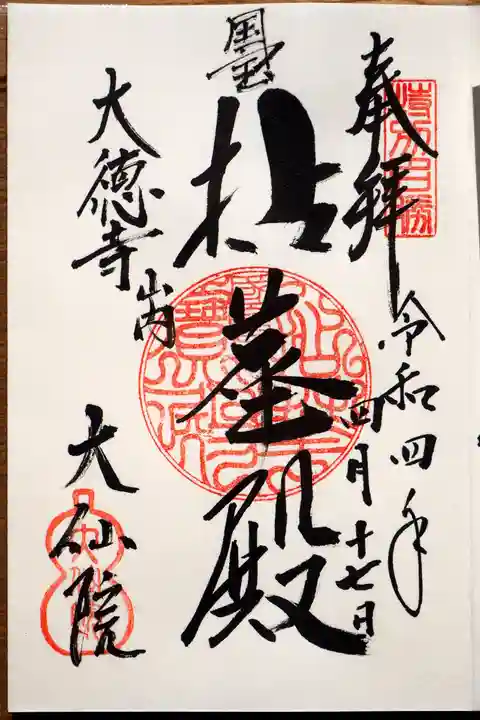 特別名勝
奉拝
令和四年
四月十七日
拈華殿
大徳寺山内
大仙院